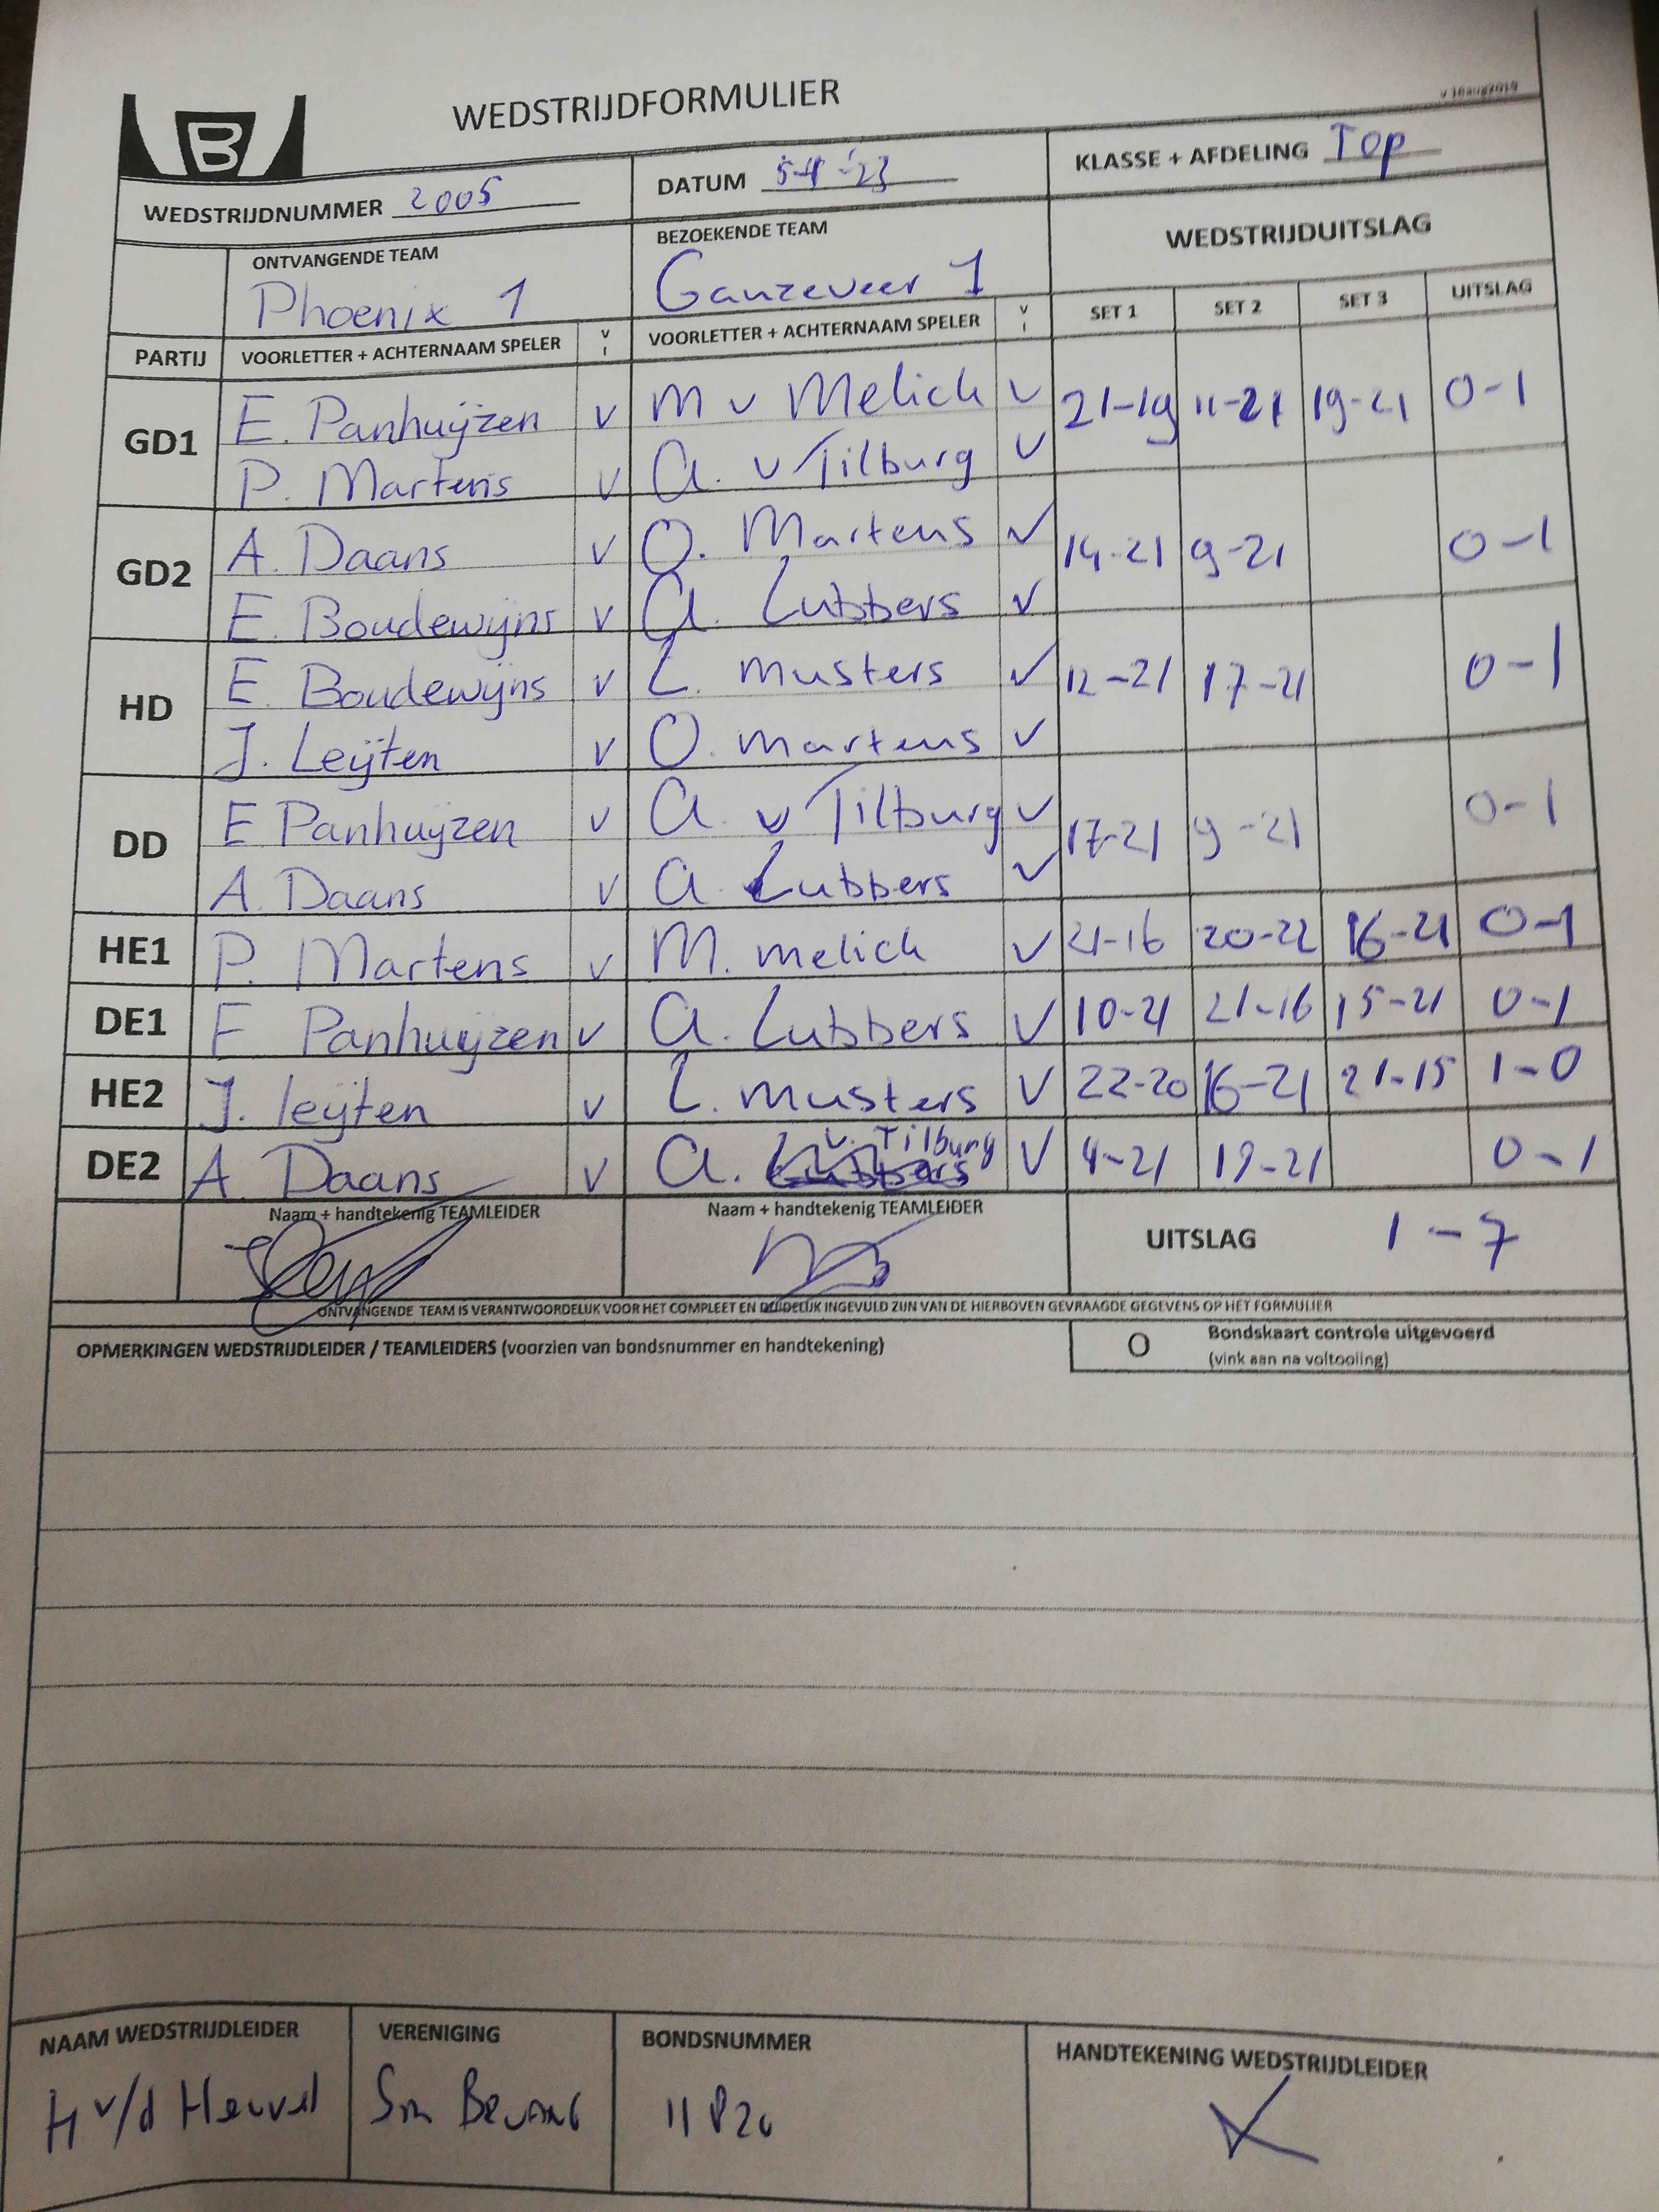 B
WEDSTRIJDFORMULIER
v 16aug2019
WEDSTRIJDNUMMER 2005
DATUM 5-4-'23
KLASSE + AFDELING Top
ONTVANGENDE TEAM
Phoenix 1
BEZOEKENDE TEAM
Ganzeveer 1
WEDSTRIJDUITSLAG
PARTIJ VOORLETTER + ACHTERNAAM SPELER V I VOORLETTER + ACHTERNAAM SPELER V I SET 1 SET 2 SET 3 UITSLAG
GD1 E. Panhuijzen v M v Melich v 21-19 11-21 19-21 0-1
P. Martens v A. v Tilburg v
GD2 A. Daans v O. Martens v 14-21 9-21 0-1
E. Boudewijns v A. Lubbers v
HD E Boudewijns v L. Musters v 12-21 17-21 0-1
J. Leijten v O. Martens v
DD E Panhuijzen v A v Tilburg v 17-21 9-21 0-1
A. Daans v A Lubbers v
HE1 P. Martens v M. Melich v 21-16 20-22 16-21 0-1
DE1 E Panhuijzen v A. Lubbers v 10-21 21-16 15-21 0-1
HE2 J. leijten v L. Musters v 22-20 16-21 21-15 1-0
DE2 A. Daans v A. v. Tilburg v 4-21 19-21 0-1
Naam + handtekenig TEAMLEIDER
Naam + handtekenig TEAMLEIDER
UITSLAG 1-7
ONTVANGENDE TEAM IS VERANTWOORDELIJK VOOR HET COMPLEET EN DUIDELIJK INGEVULD ZIJN VAN DE HIERBOVEN GEVRAAGDE GEGEVENS OP HET FORMULIER
OPMERKINGEN WEDSTRIJDLEIDER / TEAMLEIDERS (voorzien van bondsnummer en handtekening)
O Bondskaart controle uitgevoerd
(vink aan na voltooiing)
NAAM WEDSTRIJDLEIDER
H v/d Heuvel
VERENIGING
BONDSNUMMER
HANDTEKENING WEDSTRIJDLEIDER